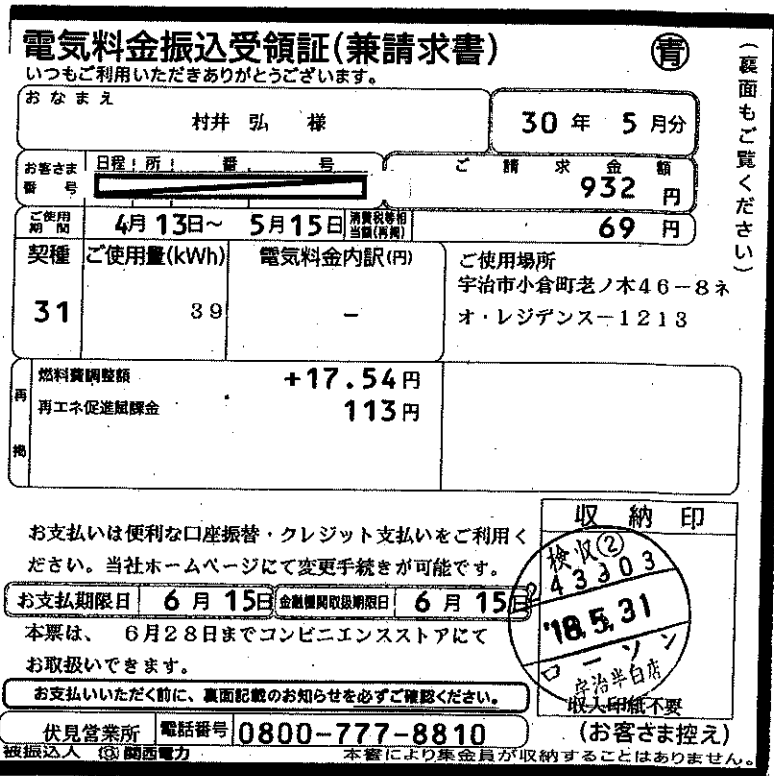 電気料金振込受領証(兼請求書)
青
いつもご利用いただきありがとうございます。
(裏面もご覧ください)
おなまえ
村井 弘 様
30年 5月分
お客さま番号
日程 所 番 号
ご請求金額
932円
ご使用期間
4月13日~ 5月15日
消費税等相当額(再掲)
69円
契種
ご使用量(kWh)
電気料金内訳(円)
31
39
-
ご使用場所
宇治市小倉町老ノ木46-8ネ
オ・レジデンス-1213
再掲
燃料費調整額 +17.54円
再エネ促進賦課金 113円
お支払いは便利な口座振替・クレジット支払いをご利用く
ださい。当社ホームページにて変更手続きが可能です。
お支払期限日 6月15日
金融機関取扱期限日 6月15日
本票は、 6月28日までコンビニエンスストアにて
お取扱いできます。
お支払いいただく前に、裏面記載のお知らせを必ずご確認ください。
収納印
検収②
243303
'18.5.31
ローソン
宇治半白店
収入印紙不要
伏見営業所
電話番号 0800-777-8810
(お客さま控え)
被振込人 関西電力
本書により集金員が収納することはありません。